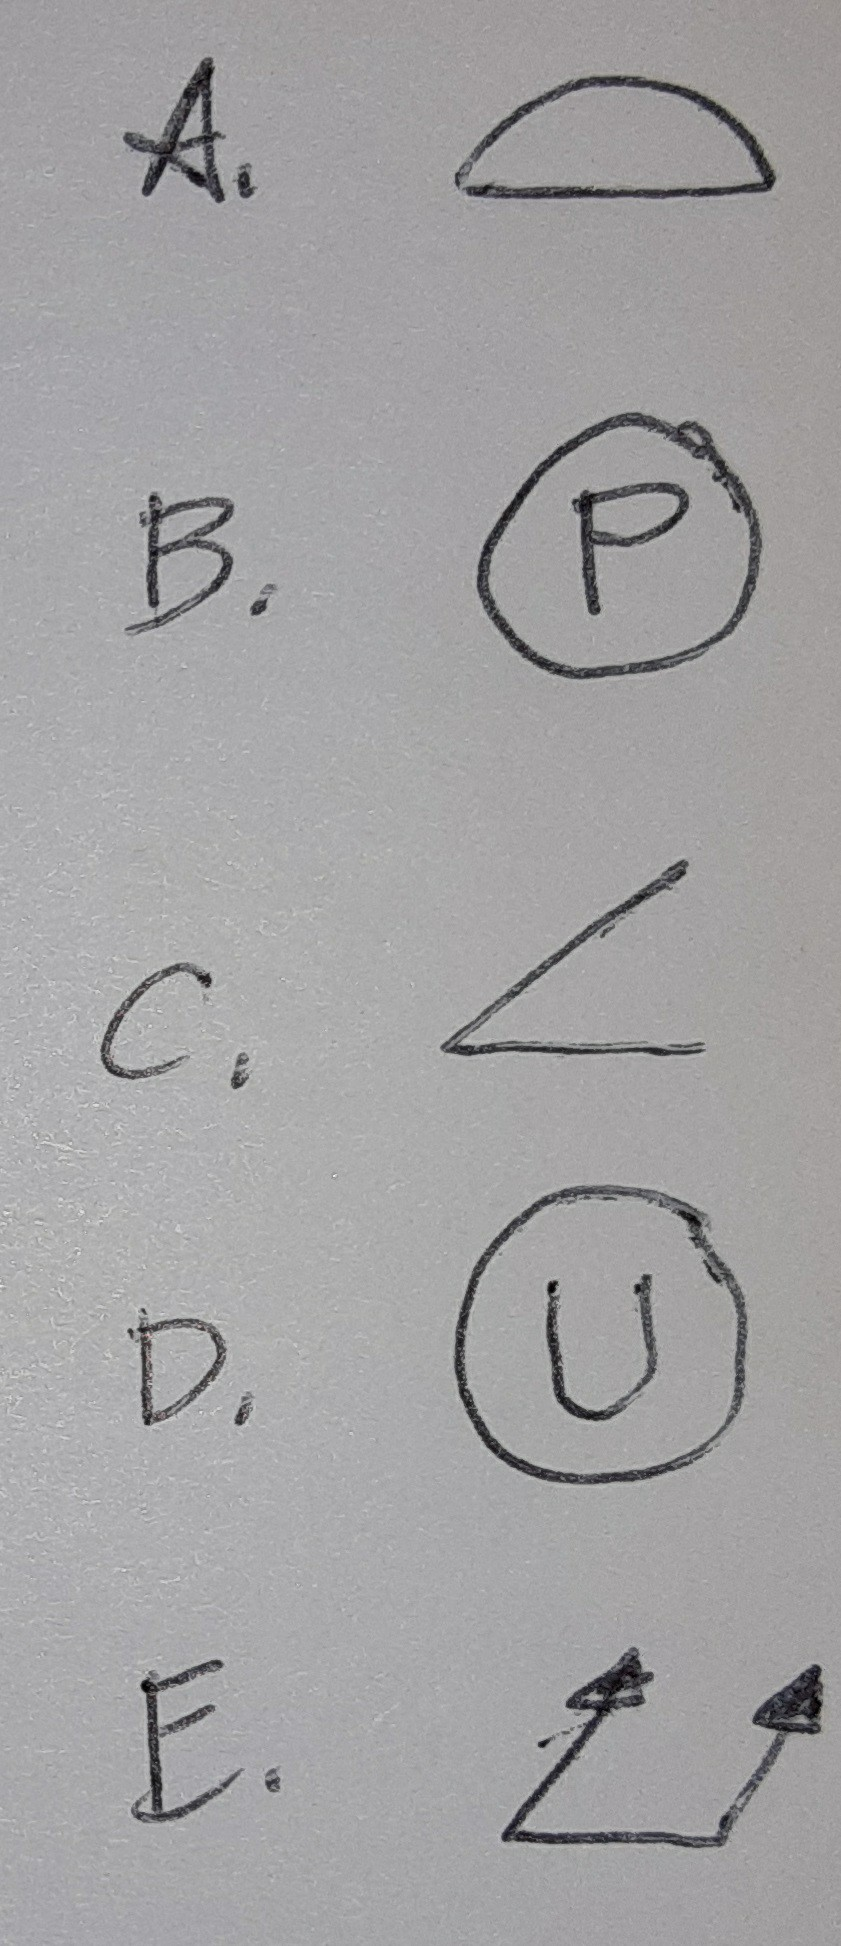 A. ⌓
B. Ⓟ
C. ∠
D. Ⓤ
E. ⌰